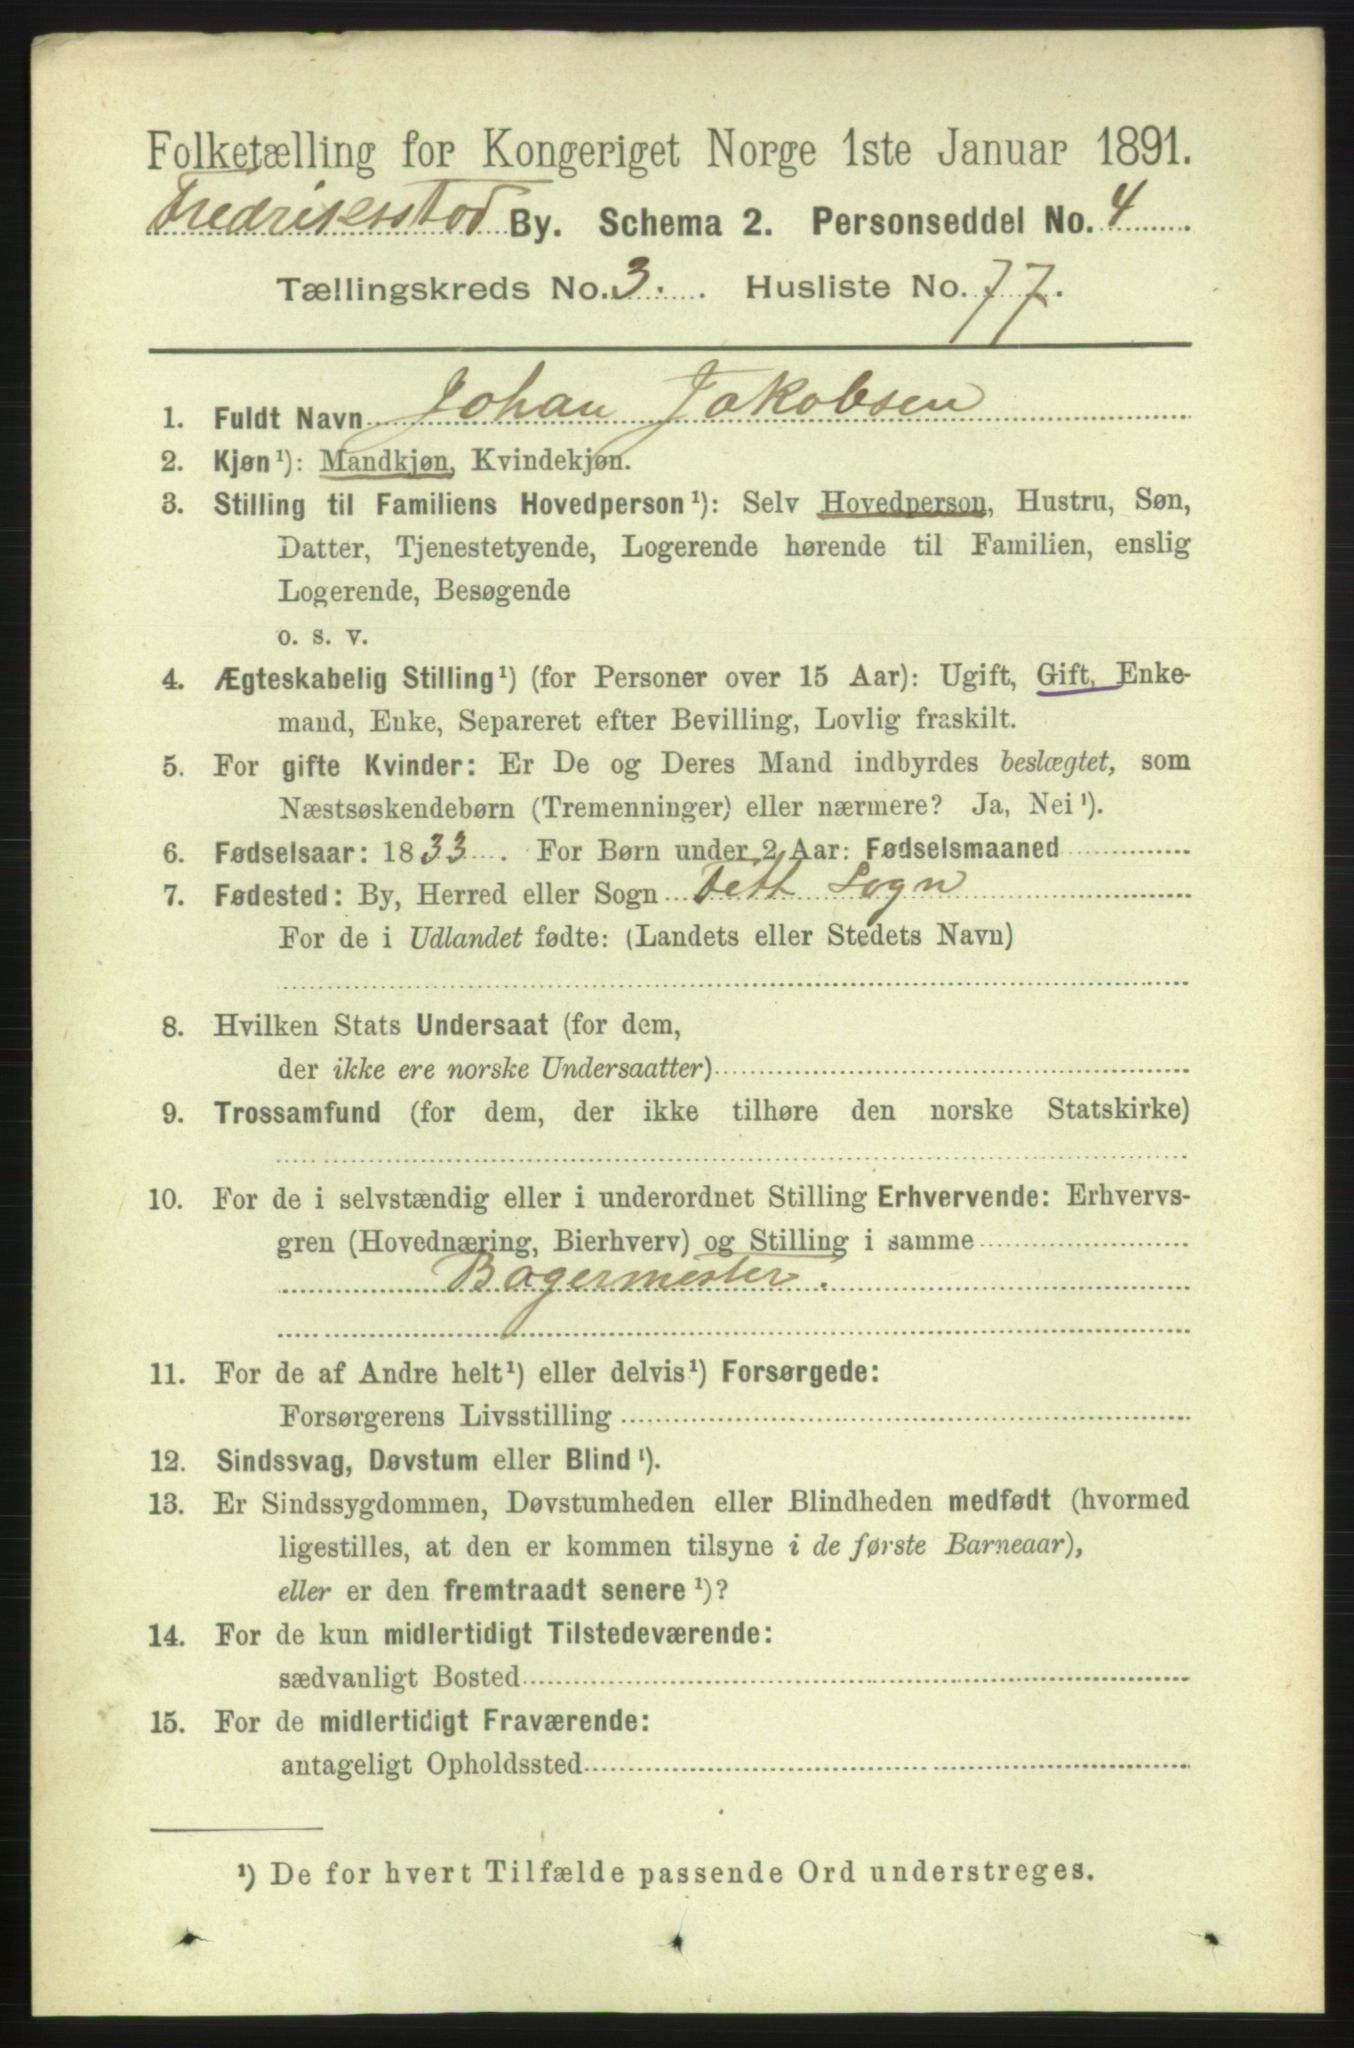 Folketælling for Kongeriget Norge 1ste Januar 1891.
Fredriksstad By. Schema 2. Personseddel No. 4
Tællingskreds No. 3. Husliste No. 77.
1. Fuldt Navn Johan Jakobsen
2. Kjøn¹): Mandkjøn, Kvindekjøn.
3. Stilling til Familiens Hovedperson¹): Selv Hovedperson, Hustru, Søn,
Datter, Tjenestetyende, Logerende hørende til Familien, enslig
Logerende, Besøgende
o. s. v.
4. Ægteskabelig Stilling¹) (for Personer over 15 Aar): Ugift, Gift, Enke-
mand, Enke, Separeret efter Bevilling, Lovlig fraskilt.
5. For gifte Kvinder: Er De og Deres Mand indbyrdes beslægtet, som
Næstsøskendebørn (Tremenninger) eller nærmere? Ja, Nei¹).
6. Fødselsaar: 1833. For Børn under 2 Aar: Fødselsmaaned
7. Fødested: By, Herred eller Sogn Tett Sogn
For de i Udlandet fødte: (Landets eller Stedets Navn)
8. Hvilken Stats Undersaat (for dem,
der ikke ere norske Undersaatter)
9. Trossamfund (for dem, der ikke tilhøre den norske Statskirke)
10. For de i selvstændig eller i underordnet Stilling Erhvervende: Erhvervs-
gren (Hovednæring, Bierhverv) og Stilling i samme
Bagermester.
11. For de af Andre helt¹) eller delvis¹) Forsørgede:
Forsørgerens Livsstilling
12. Sindssvag, Døvstum eller Blind¹).
13. Er Sindssygdommen, Døvstumheden eller Blindheden medfødt (hvormed
ligestilles, at den er kommen tilsyne i de første Barneaar),
eller er den fremtraadt senere¹)?
14. For de kun midlertidigt Tilstedeværende:
sædvanligt Bosted
15. For de midlertidigt Fraværende:
antageligt Opholdssted
¹) De for hvert Tilfælde passende Ord understreges.